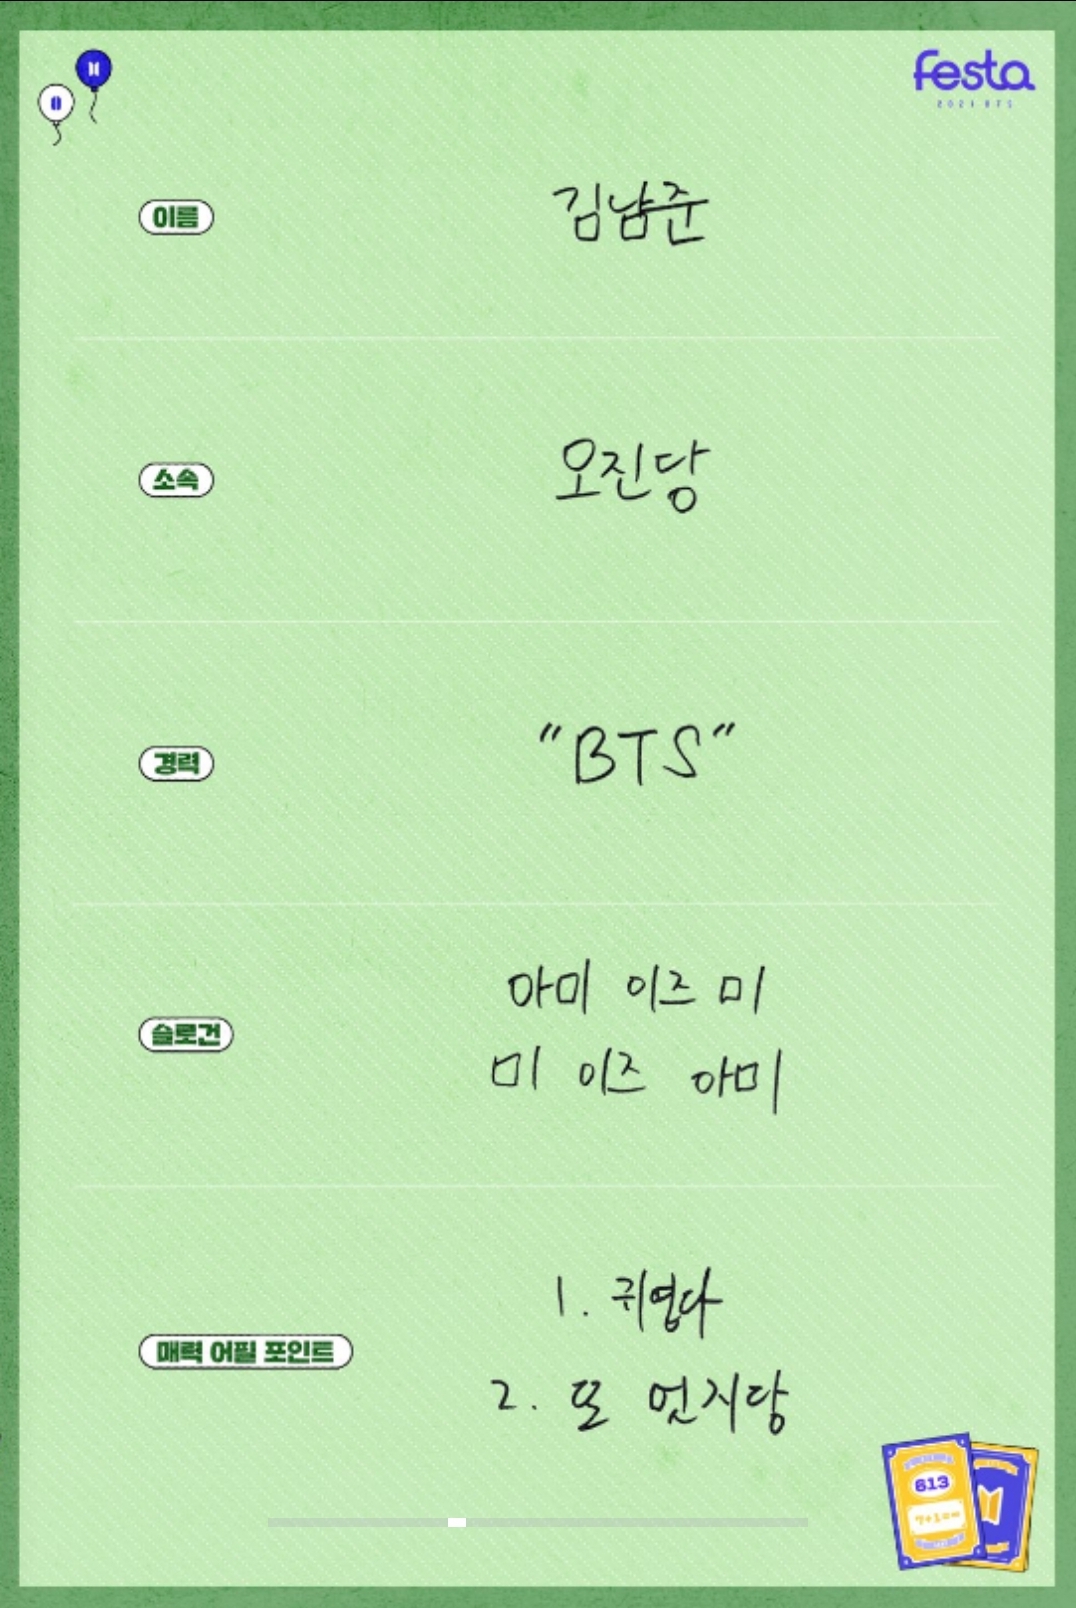 festa
2021 BTS
이름
김남준
소속
오진당
경력
"BTS"
슬로건
아미 이즈 미
미 이즈 아미
매력 어필 포인트
1. 귀엽다
2. 또 멋지당
613